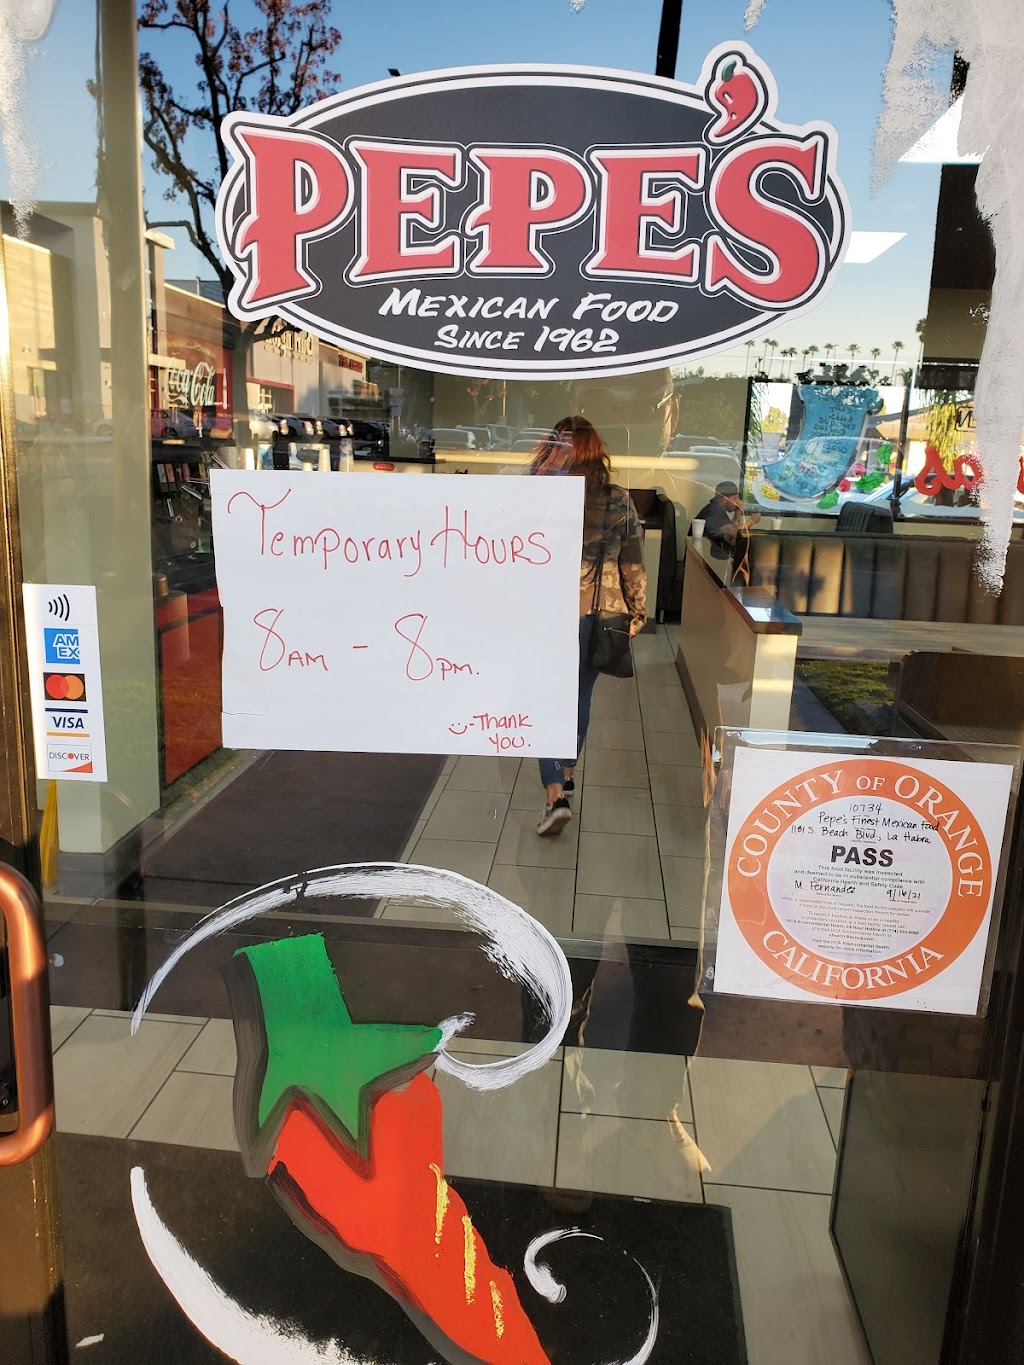 PEPE'S
MEXICAN FOOD
SINCE 1962
Coca-Cola
Temporary HOURS
8AM - 8PM.
:)-Thank
YOU.
AM
EX
VISA
DISCOVER
COUNTY OF ORANGE
10734
Pepe's Finest Mexican Food
1181 S. Beach Blvd., La Habra
PASS
This food facility was inspected
and deemed to be in substantial compliance with
California Health and Safety Code.
M. Fernandez 9/16/21
CALIFORNIA